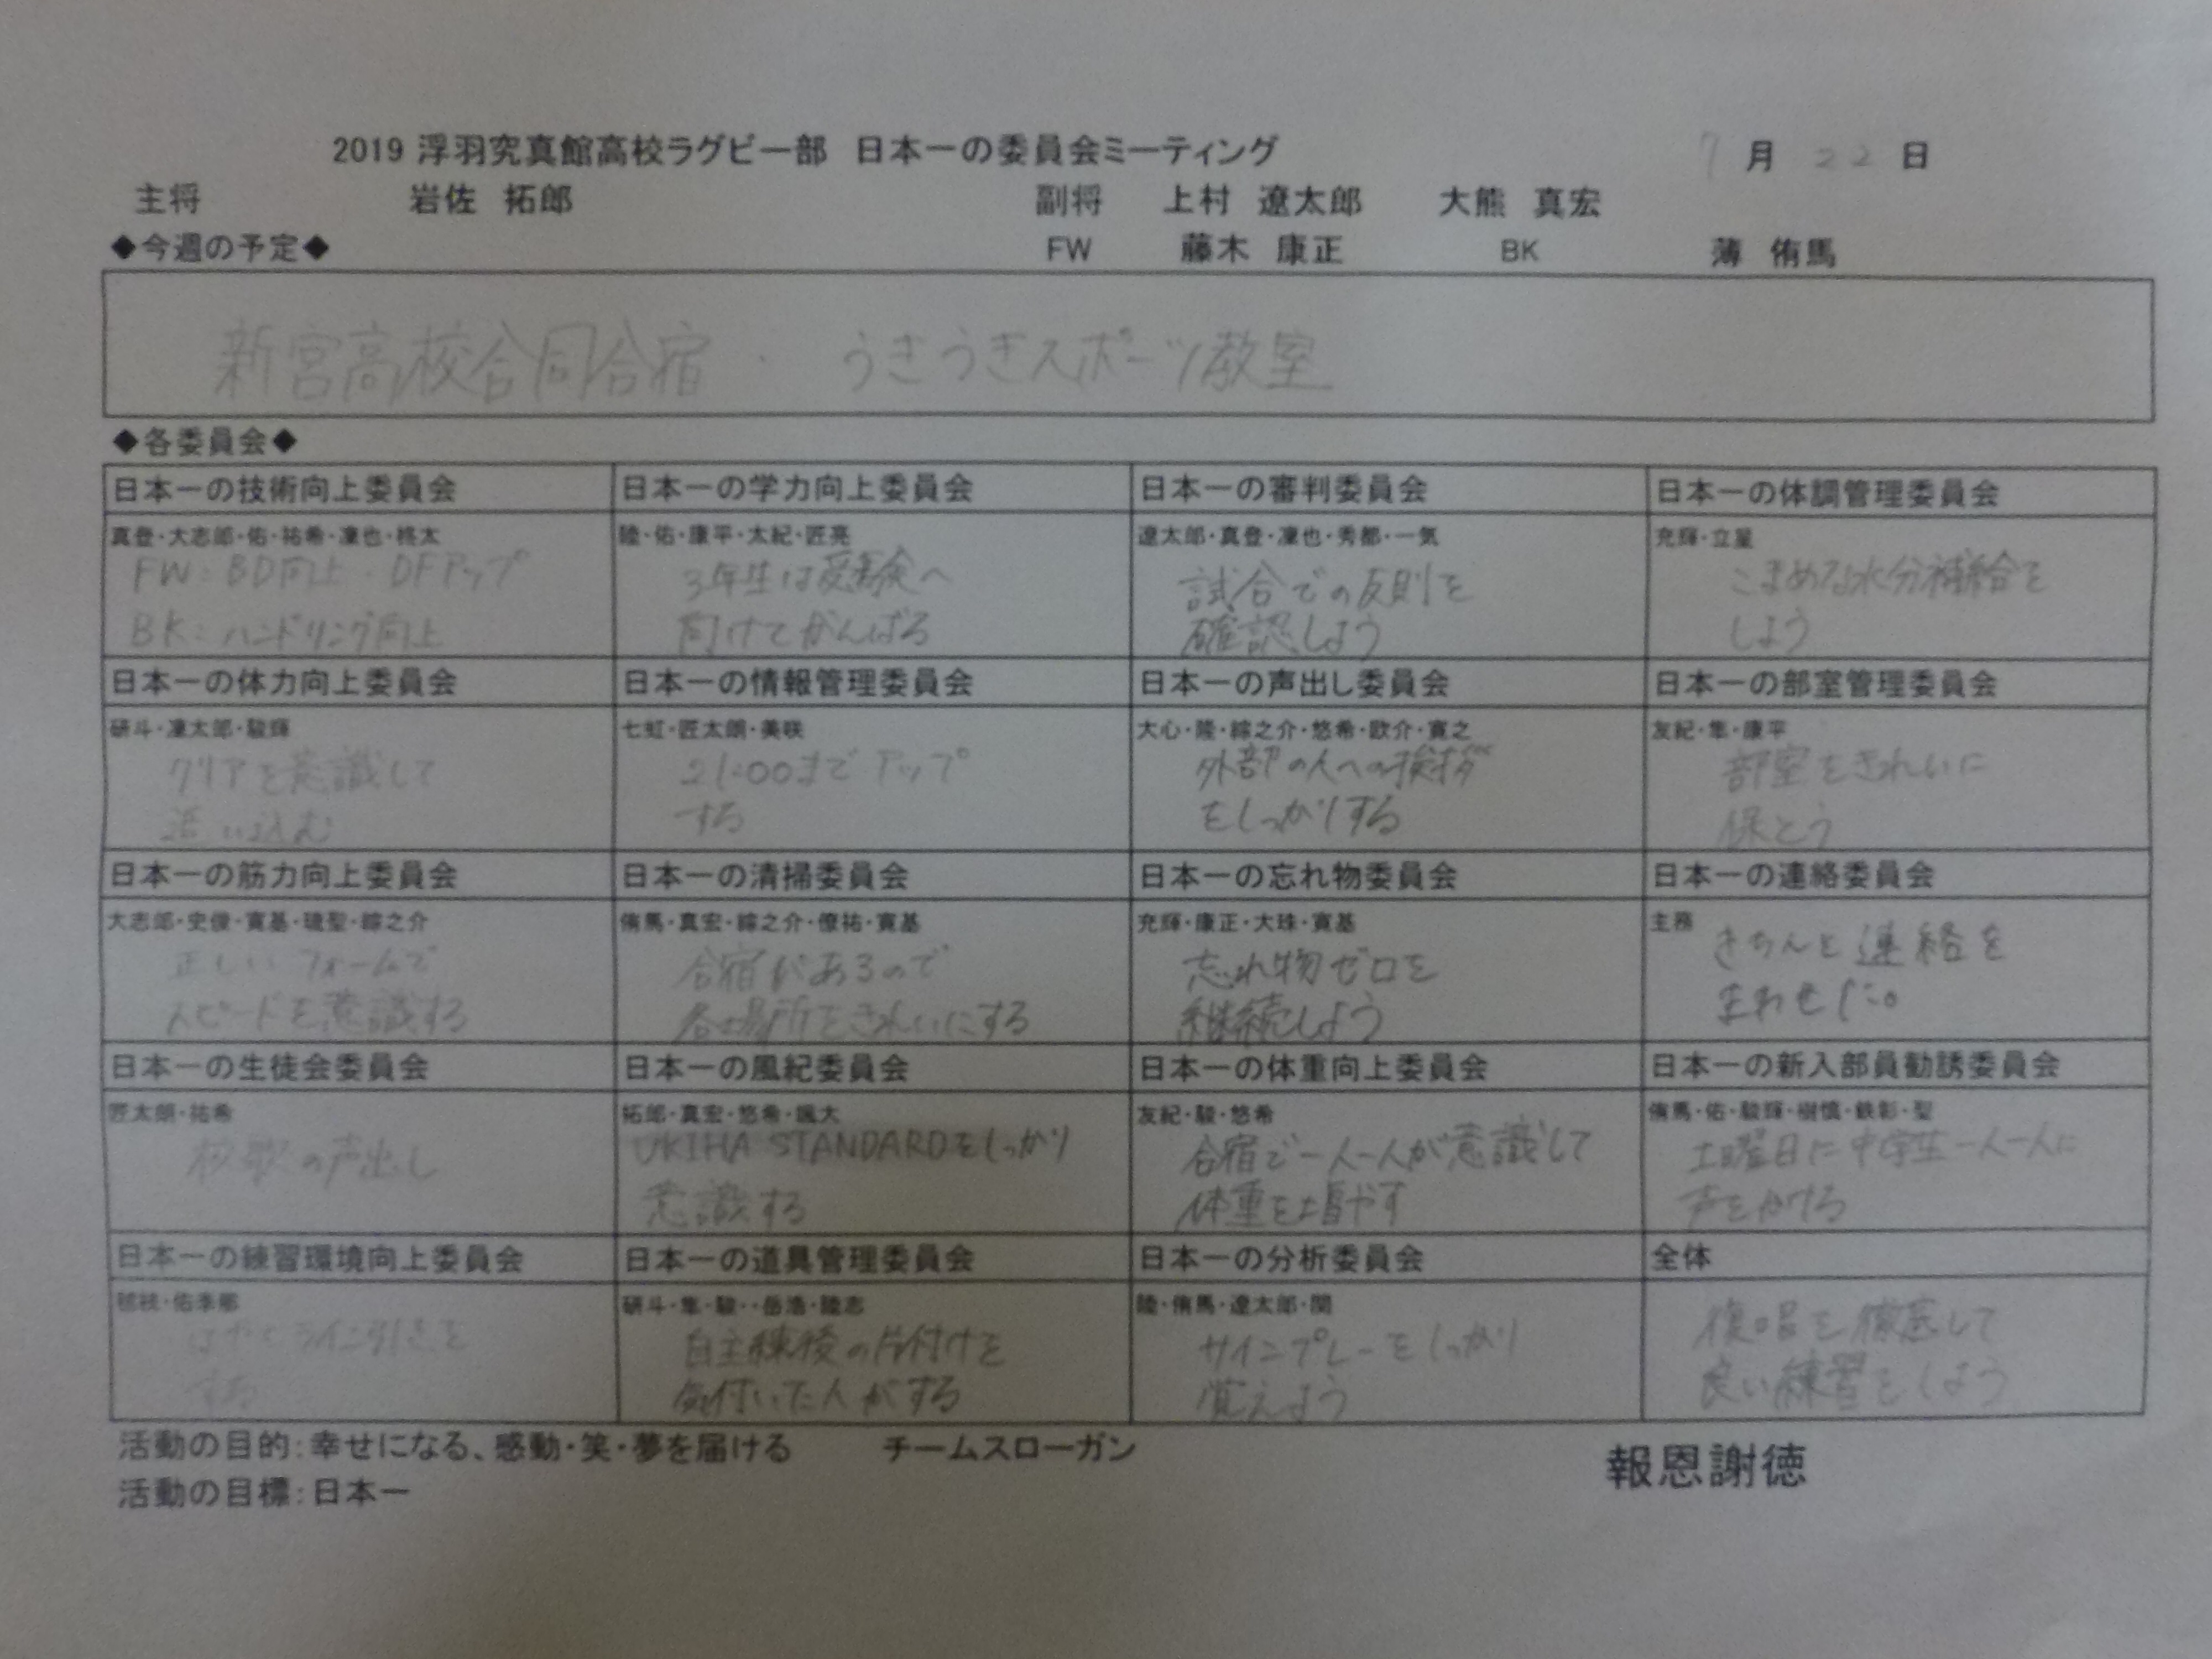 2019 浮羽究真館高校ラグビー部 日本一の委員会ミーティング 7月22日
主将 岩佐 拓郎 副将 上村 遼太郎 大熊 真宏
◆今週の予定◆ FW 藤木 康正 BK 薄 侑馬
新宮高校合同合宿 ・ うきうきスポーツ教室
◆各委員会◆
日本一の技術向上委員会 日本一の学力向上委員会 日本一の審判委員会 日本一の体調管理委員会
真登・大志郎・佑・祐希・凜也・柊太
FW:BD向上・DFアップ
BK:ハンドリング向上
陸・佑・康平・太紀・匠亮
3年生は受験へ
向けてがんばる
遼太郎・真登・凜也・秀都・一気
試合での反則を
確認しよう
充輝・立星
こまめな水分補給を
しよう
日本一の体力向上委員会 日本一の情報管理委員会 日本一の声出し委員会 日本一の部室管理委員会
研斗・凜太郎・駿輝
クリアを意識して
追い込む
七虹・匠太朗・美咲
21:00までアップ
する
大心・陸・綜之介・悠希・欧介・寛之
外部の人への挨拶
をしっかりする
友紀・隼・康平
部室をきれいに
保とう
日本一の筋力向上委員会 日本一の清掃委員会 日本一の忘れ物委員会 日本一の連絡委員会
大志郎・史俊・寛基・琉聖・綜之介
正しいフォームで
スピードを意識する
侑馬・真宏・綜之介・僚祐・寛基
合宿があるので
各場所をきれいにする
充輝・康正・大珠・寛基
忘れ物ゼロを
継続しよう
主務
きちんと連絡を
まわせた。
日本一の生徒会委員会 日本一の風紀委員会 日本一の体重向上委員会 日本一の新入部員勧誘委員会
匠太朗・祐希
校歌の声出し
拓郎・真宏・悠希・颯大
UKIHA STANDARDをしっかり
意識する
友紀・駿・悠希
合宿で一人一人が意識して
体重を増やす
侑馬・佑・駿輝・樹慎・鉄彰・聖
土曜日に中学生一人一人に
声をかける
日本一の練習環境向上委員会 日本一の道具管理委員会 日本一の分析委員会 全体
はやくライン引きを
する
研斗・隼・駿・・岳浩・陸志
自主練後の片付けを
気付いた人がする
陸・侑馬・遼太郎・関
サインプレーをしっかり
覚えよう
復唱を徹底して
良い練習をしよう
活動の目的:幸せになる、感動・笑・夢を届ける チームスローガン 報恩謝徳
活動の目標:日本一